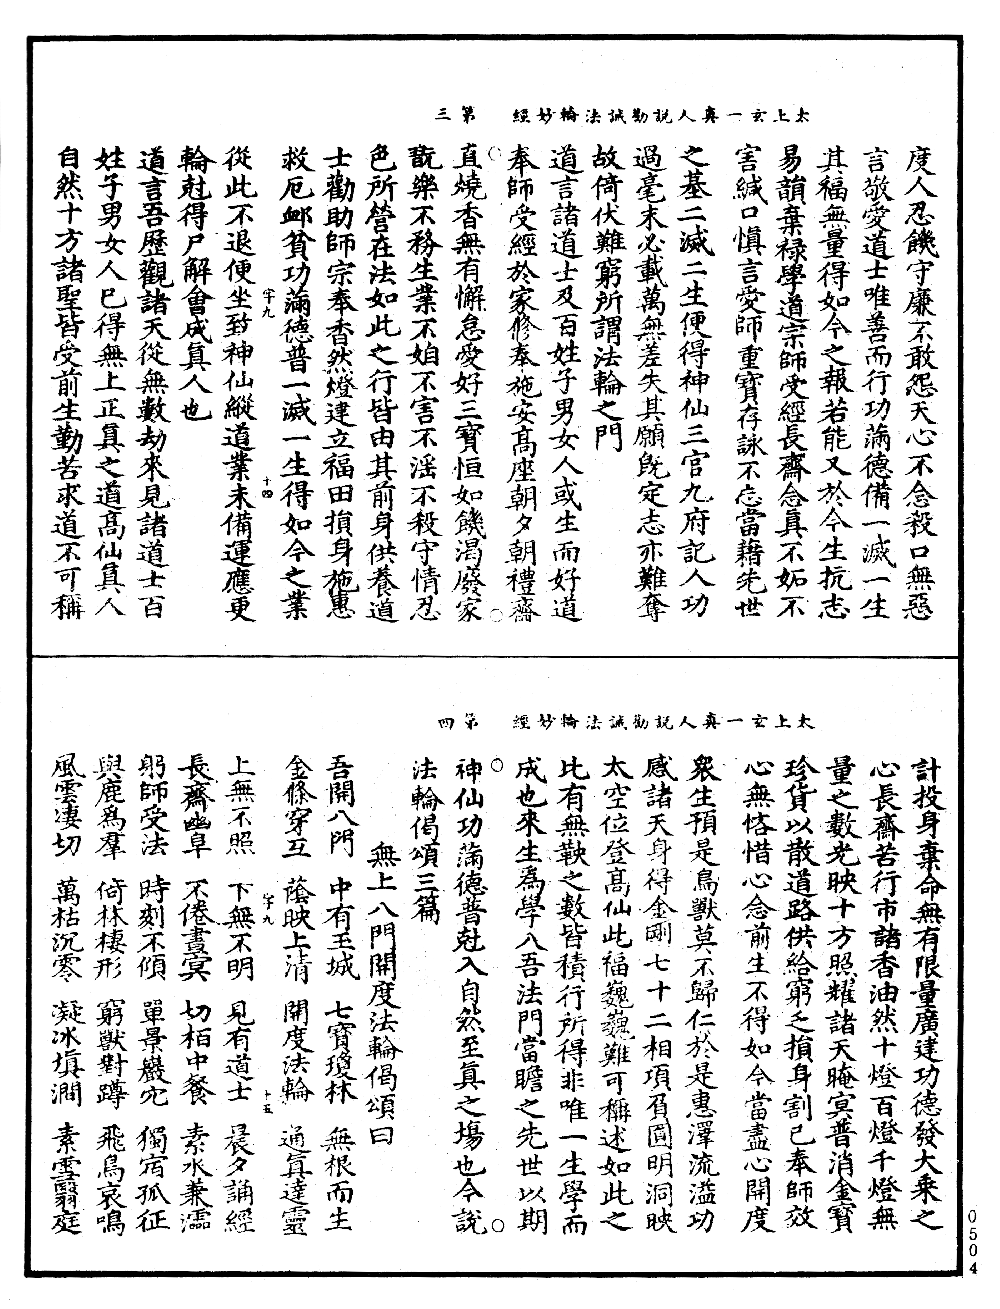 太上玄一真人說勸誡法輪妙經　第三
度人忍饑守廉不敢怨天心不念殺口無惡
言敬愛道士唯善而行功滿德備一滅一生
其福無量得如今之報若能又於今生抗志
易韻棄祿學道宗師受經長齋念真不妬不
害緘口慎言愛師重寶存詠不忘當藉先世
之基二滅二生便得神仙三官九府記人功
過毫末必載萬無差失其願既定志亦難奪
故倚伏難窮所謂法輪之門
道言諸道士及百姓子男女人或生而好道
奉師受經於家修奉施安高座朝夕朝禮齋
直燒香無有懈怠愛好三寶恒如饑渴廢家
翫樂不務生業不妬不害不淫不殺守情忍
色所營在法如此之行皆由其前身供養道
士勸助師宗奉香然燈建立福田損身施惠
救厄卹貧功滿德普一滅一生得如今之業
字九　十四
從此不退便坐致神仙縱道業未備運應更
輪尅得尸解會成真人也
道言吾歷觀諸天從無數劫來見諸道士百
姓子男女人已得無上正真之道高仙真人
自然十方諸聖皆受前生勤苦求道不可稱
太上玄一真人說勸誡法輪妙經　第四
計投身棄命無有限量廣建功德發大乘之
心長齋苦行市諸香油然十燈百燈千燈無
量之數光映十方照耀諸天晻冥普消金寶
珍貨以散道路供給窮乏損身割己奉師效
心無恡惜心念前生不得如今當盡心開度
衆生預是鳥獸莫不歸仁於是惠澤流溢功
感諸天身得金剛七十二相項負圓明洞映
太空位登高仙此福巍巍難可稱述如此之
比有無鞅之數皆積行所得非唯一生學而
成也來生爲學八吾法門當瞻之先世以期
神仙功滿德普尅入自然至真之場也今說
法輪偈頌三篇
無上八門開度法輪偈頌曰
吾開八門　中有玉城　七寶瓊林　無根而生
金條穿互　蔭映上清　開度法輪　通真達靈
字九　十五
上無不照　下無不明　見有道士　晨夕誦經
長齋幽阜　不倦晝冥　切栢中餐　素水兼濡
躬師受法　時刻不傾　單景巖穴　獨宿孤征
與鹿爲羣　倚林棲形　窮獸對蹲　飛鳥哀鳴
風雲淒切　萬枯沉零　凝冰塡澗　素雪翳庭
0504